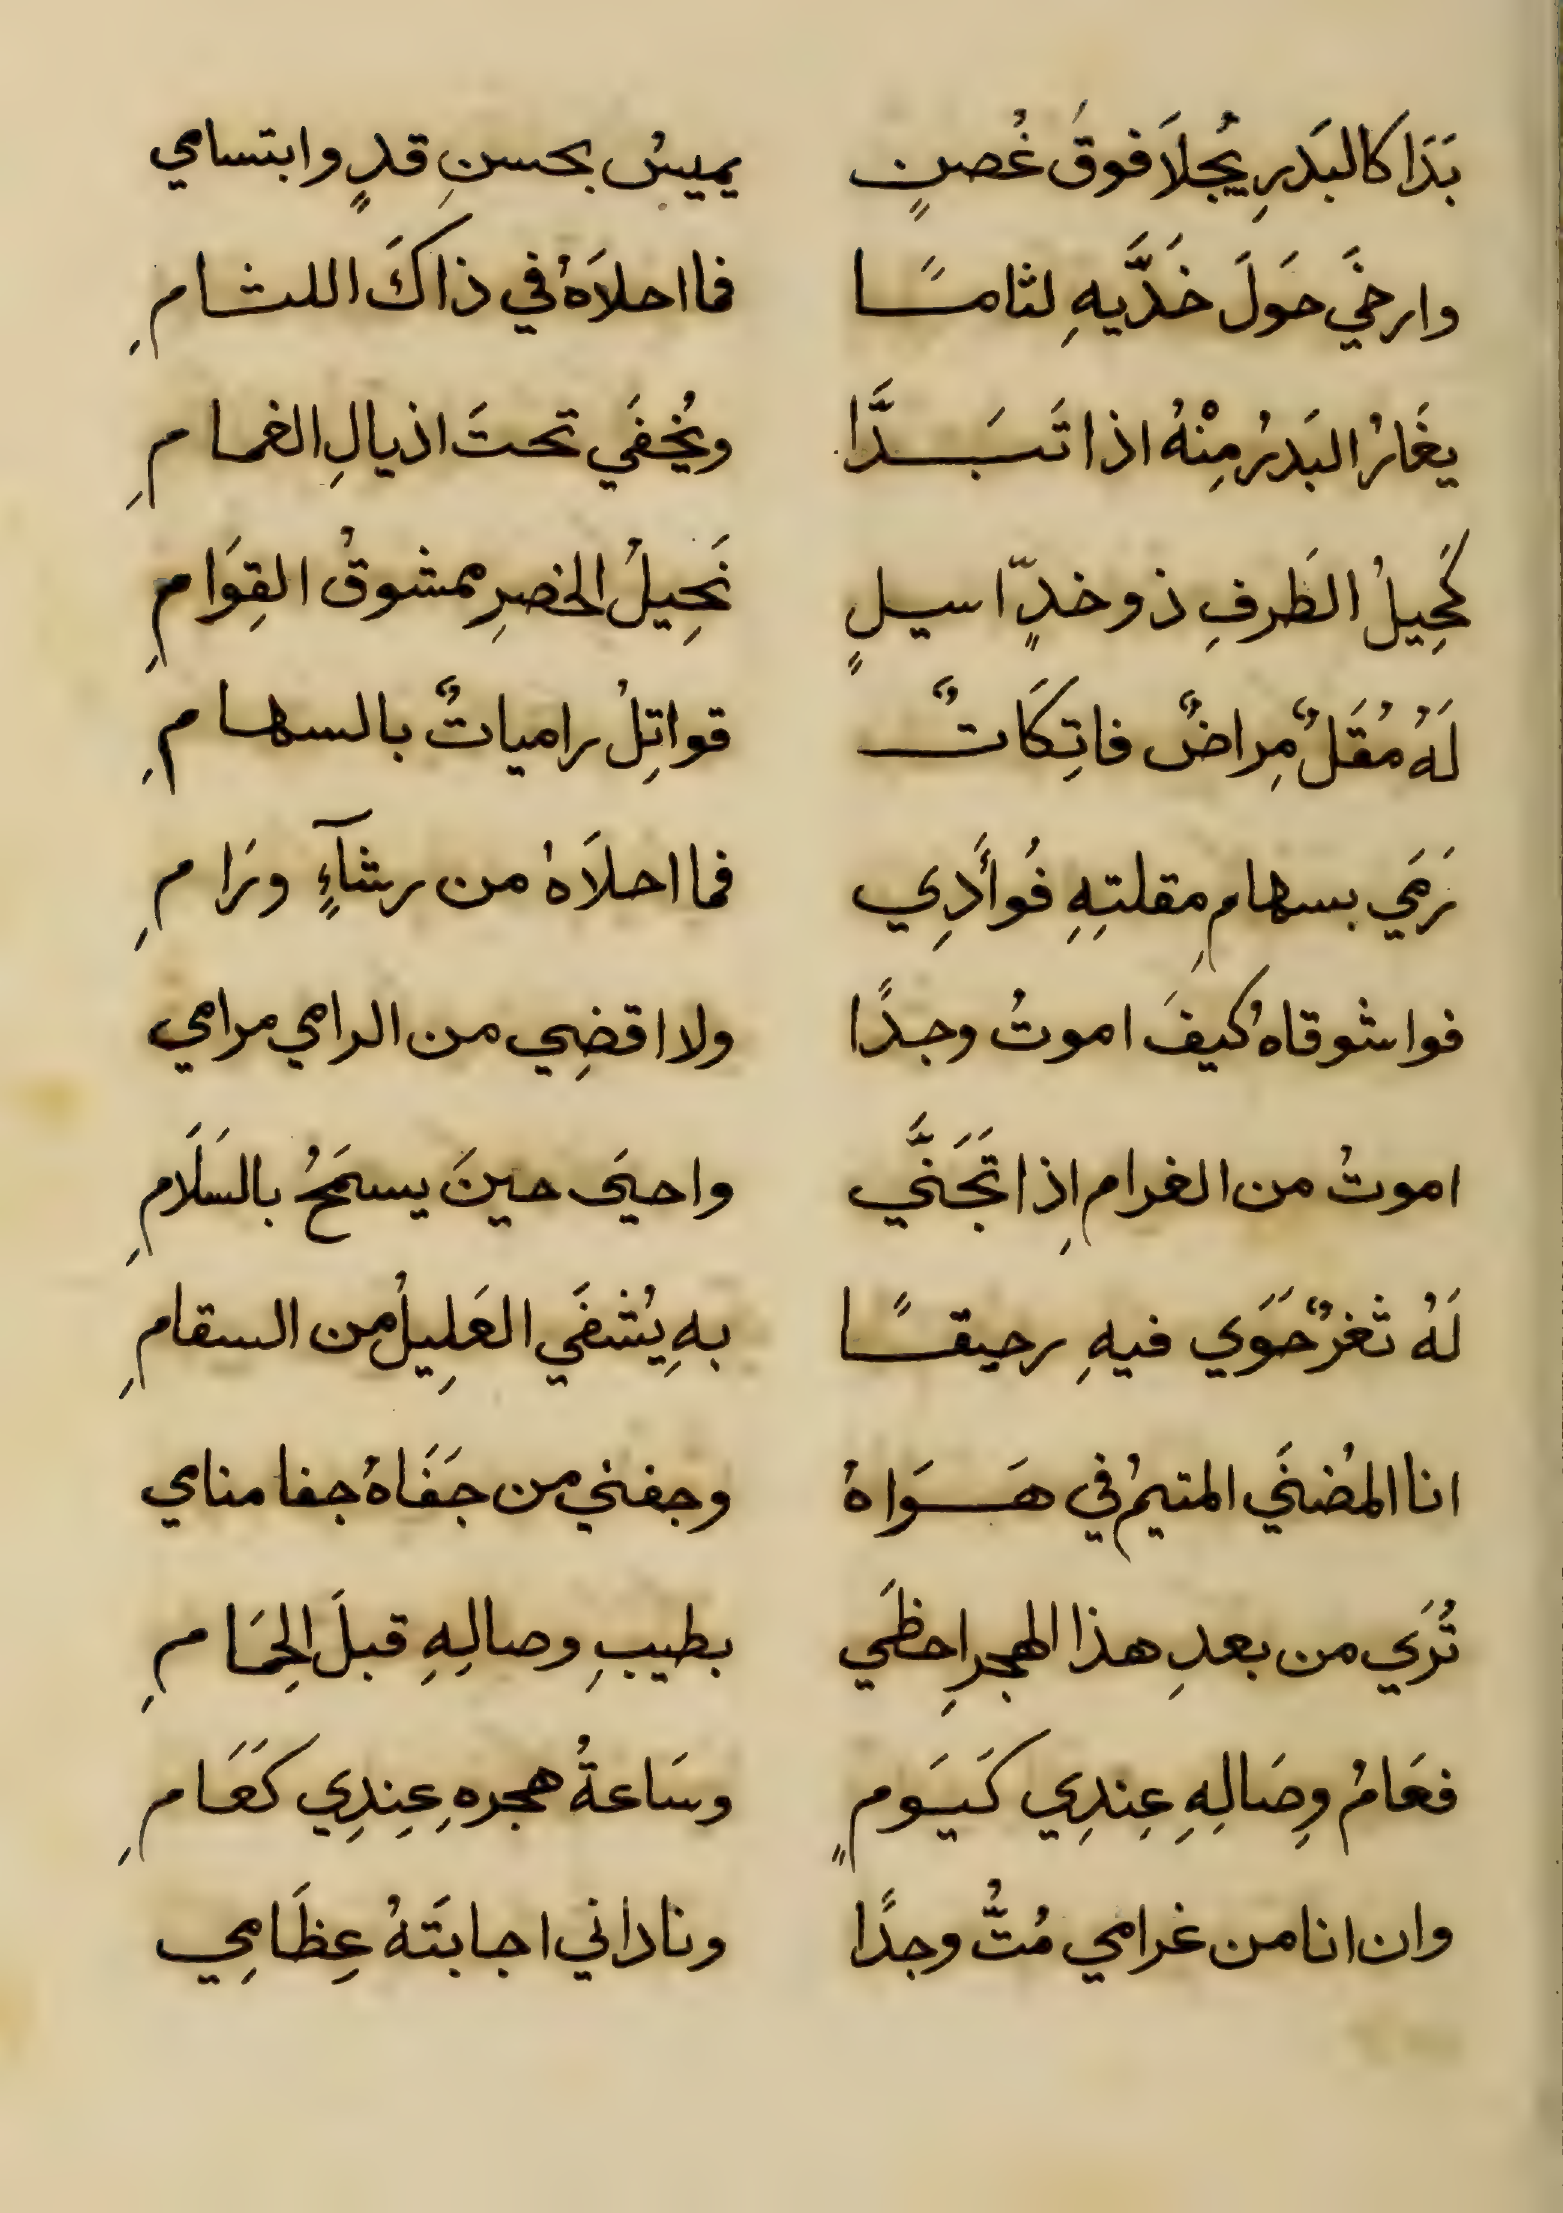 بَدَا كالبَدرِ يُجلَا فوقَ غُصنٍ يميسُ بحسنِ قدٍ وابتسامي
وارخَي حَولَ خَدَّيهِ لثامًا فما احلاَهُ في ذاكَ اللثامِ
يغَارُ البَدرُ مِنْهُ اذا تَبَدَّا ويُخفَي تحتَ اذيالِ الغمامِ
كَحِيلُ الطَرفِ ذو خدٍّ اسيلٍ نَحِيلُ الخصرِ ممشوقُ القِوَامِ
لَهُ مُقَلٌ مِراضٌ فاتِكَاتٌ قواتِلُ رامياتٌ بالسهامِ
رَمَي بسهامِ مقلتِهِ فُوأَدِي فما احلاَهُ من رشآءٍ ورَامِ
فواشوقاهُ كيفَ اموتُ وجدًا ولا اقضِي من الرامي مرامي
اموتُ من الغرامِ إذا تَجَنَّي واحيَى حينَ يسمَحُ بالسَلَامِ
لَهُ ثَغرٌ حَوَي فيهِ رحيقًا بهِ يُشفَي العَلِيلُ من السقامِ
انا المُضنَي المتيمُ في هَوَاهُ وجفني من جَفَاهُ جفا منامي
تُرَي من بعدِ هذا الهجرِ احظَي بطيبِ وصالِهِ قبلَ الحِمَامِ
فعَامُ وِصَالِهِ عِندِي كَيَومٍ وسَاعةُ هجرهِ عِندِي كَعَامِ
وان انا من غرامي مُتُّ وجدًا وناداني اجابَتهُ عِظَامِي